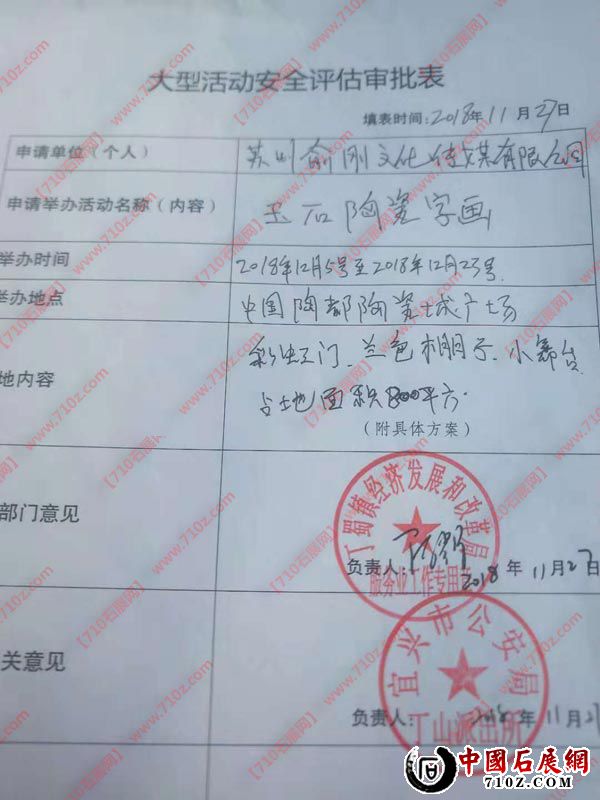 大型活动安全评估审批表
填表时间:2018年11月27日
申请单位(个人) 苏州俞刚文化传媒有限公司
申请举办活动名称(内容) 玉石陶瓷字画
举办时间 2018年12月5号至2018年12月23号
举办地点 中国陶都陶瓷城广场
地内容 彩虹门、兰色棚子、小舞台
占地面积800平方.
(附具体方案)
部门意见
丁蜀镇经济发展和改革局
服务业工作专用章
负责人: 2018年11月27日
关意见
宜兴市公安局
丁山派出所
负责人: 2018年11月27
【710石展网】www.710z.com
中國石展網
www.710z.com